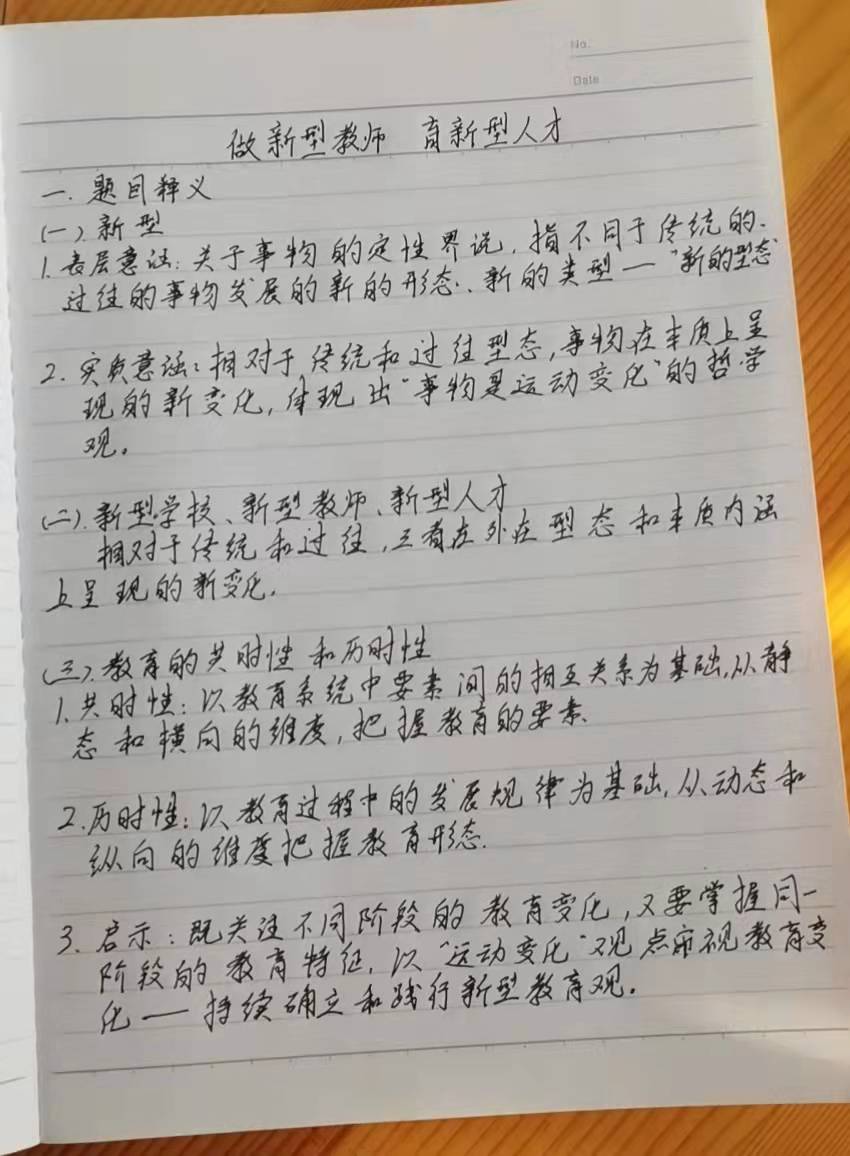 No.
Date
做新型教师 育新型人才
一. 题目释义
(一). 新型
1. 表层意涵: 关于事物的定性界说, 指不同于传统的.
过往的事物发展的新的形态.. 新的类型 — "新的型态"
2. 实质意涵: 相对于传统和过往型态, 事物在本质上呈
现的新变化, 体现出"事物是运动变化"的哲学
观。
(二). 新型学校、新型教师、新型人才
相对于传统和过往, 三者在外在型态和本质内涵
上呈现的新变化.
(三). 教育的共时性和历时性
1. 共时性: 以教育系统中要素间的相互关系为基础, 从静
态和横向的维度, 把握教育的要素.
2. 历时性: 以教育过程中的发展规律为基础, 从动态和
纵向的维度把握教育形态.
3. 启示: 既关注不同阶段的教育变化, 又要掌握同一
阶段的教育特征, 以"运动变化"观点审视教育变
化 — 持续确立和践行新型教育观。